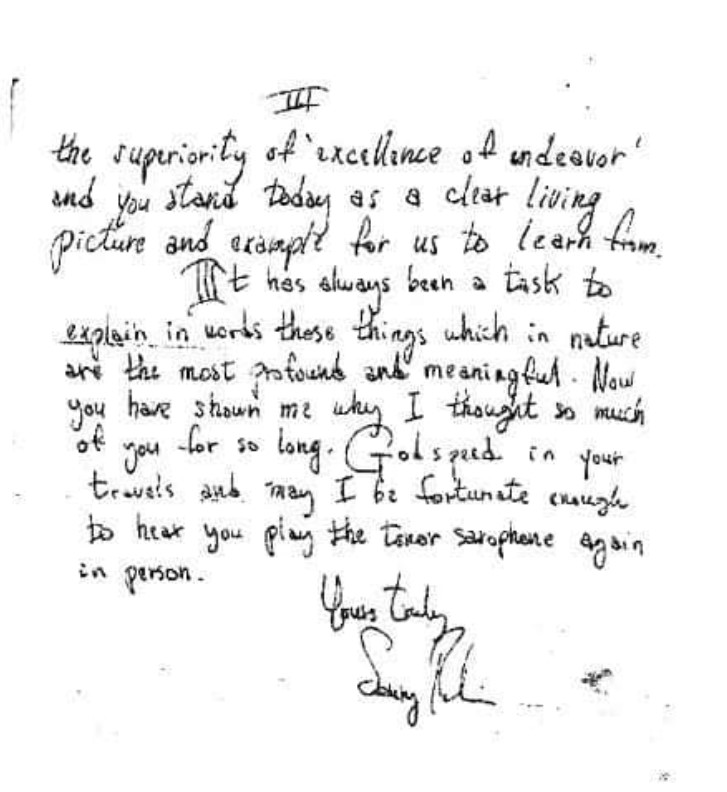 III
the superiority of 'excellence of endeavor'
and you stand today as a clear living
picture and example for us to learn from.
It has always been a task to
explain in words those things which in nature
are the most profound and meaningful. Now
you have shown me why I thought so much
of you for so long. Godspeed in your
travels and may I be fortunate enough
to hear you play the tenor saxophone again
in person.
Yours truly
Sonny